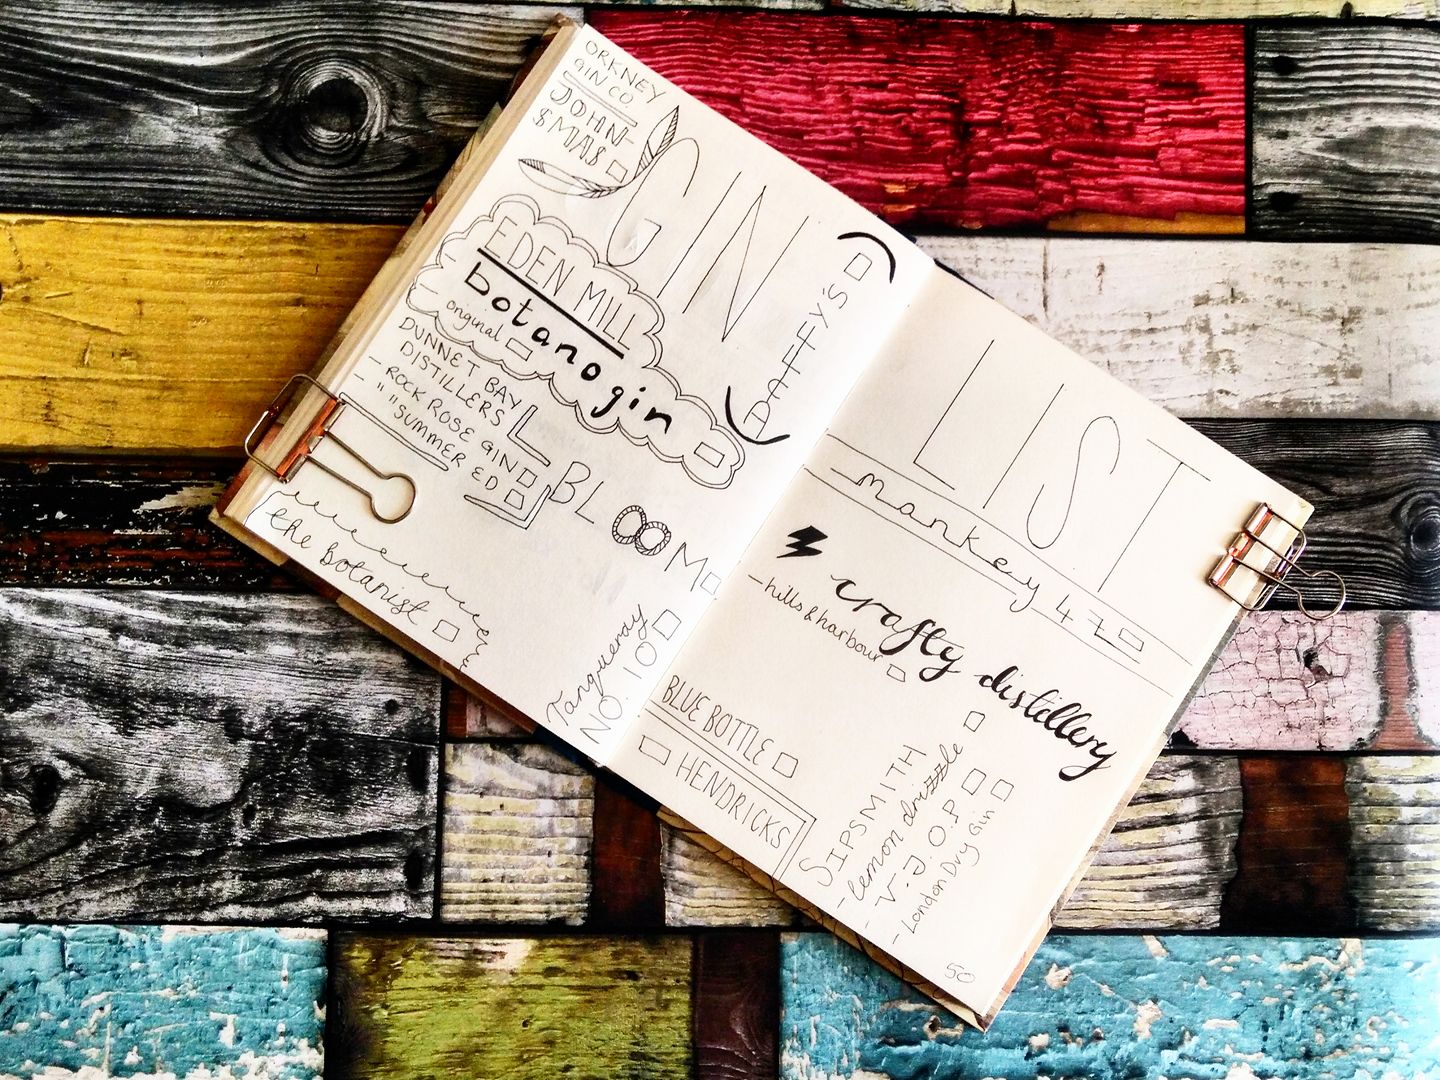 ORKNEY
GIN CO.
JOHN
GIN
EDEN MILL
botanogin
original
DAFFY'S
DUNNET BAY
DISTILLERS
- ROCK ROSE GIN
- " " SUMMER ED
BLOOM
the Botanist
Tanqueray
NO. 10
LIST
monkey 47
crafty distillery
- hills & harbour
BLUE BOTTLE
HENDRICKS
SIPSMITH
- lemon drizzle
- V.J.O.P
- London Dry Gin
50